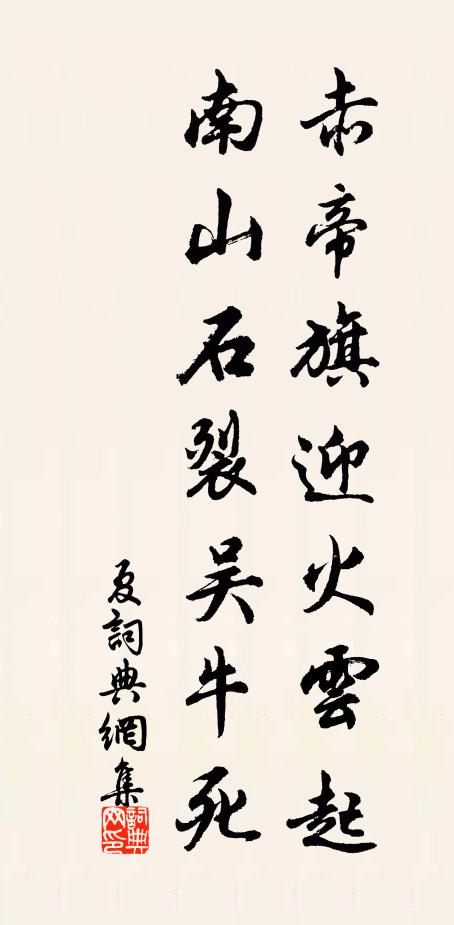 赤帝旗迎火雲起
南山石裂吴牛死
夏詞典網集
詞典
网印